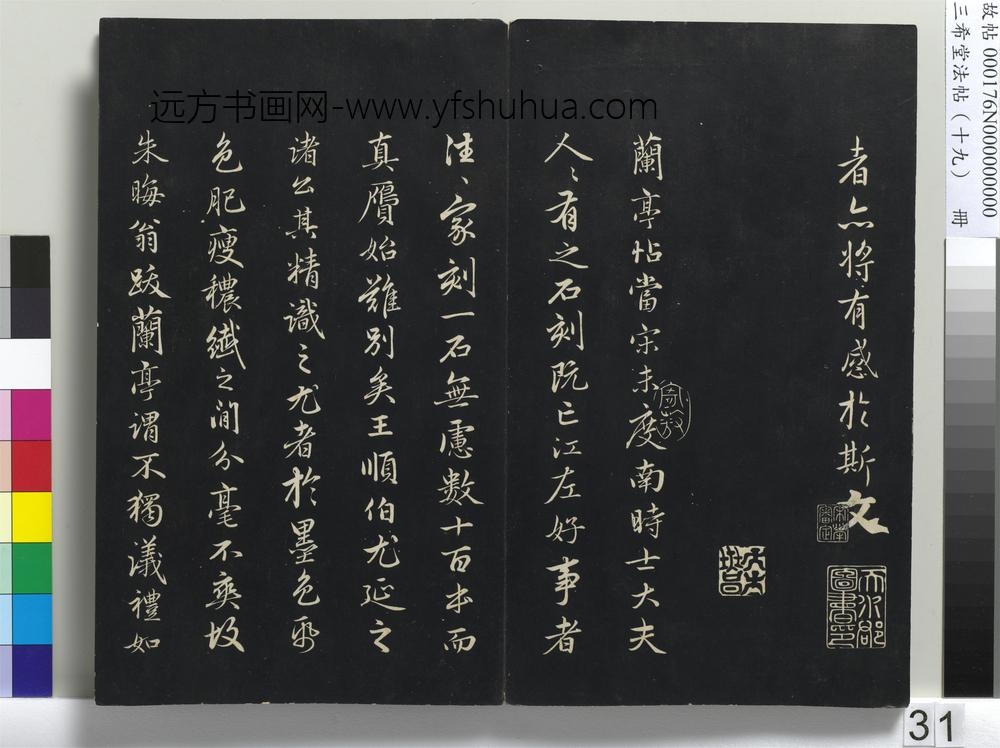 者亦將有感於斯文
蘭亭帖當宋未度南時士大夫
人〻有之石刻既亡江左好事者
往〻家刻一石無慮數十百本而
真贋始難別矣王順伯尤延之
諸公其精識之尤者於墨色紙
色肥瘦穠纖之間分毫不爽故
朱晦翁跋蘭亭謂不獨議禮如
天水郡圖書印
远方书画网-www.yfshuhua.com
故帖 000176N000000000
三希堂法帖（十九） 冊
31